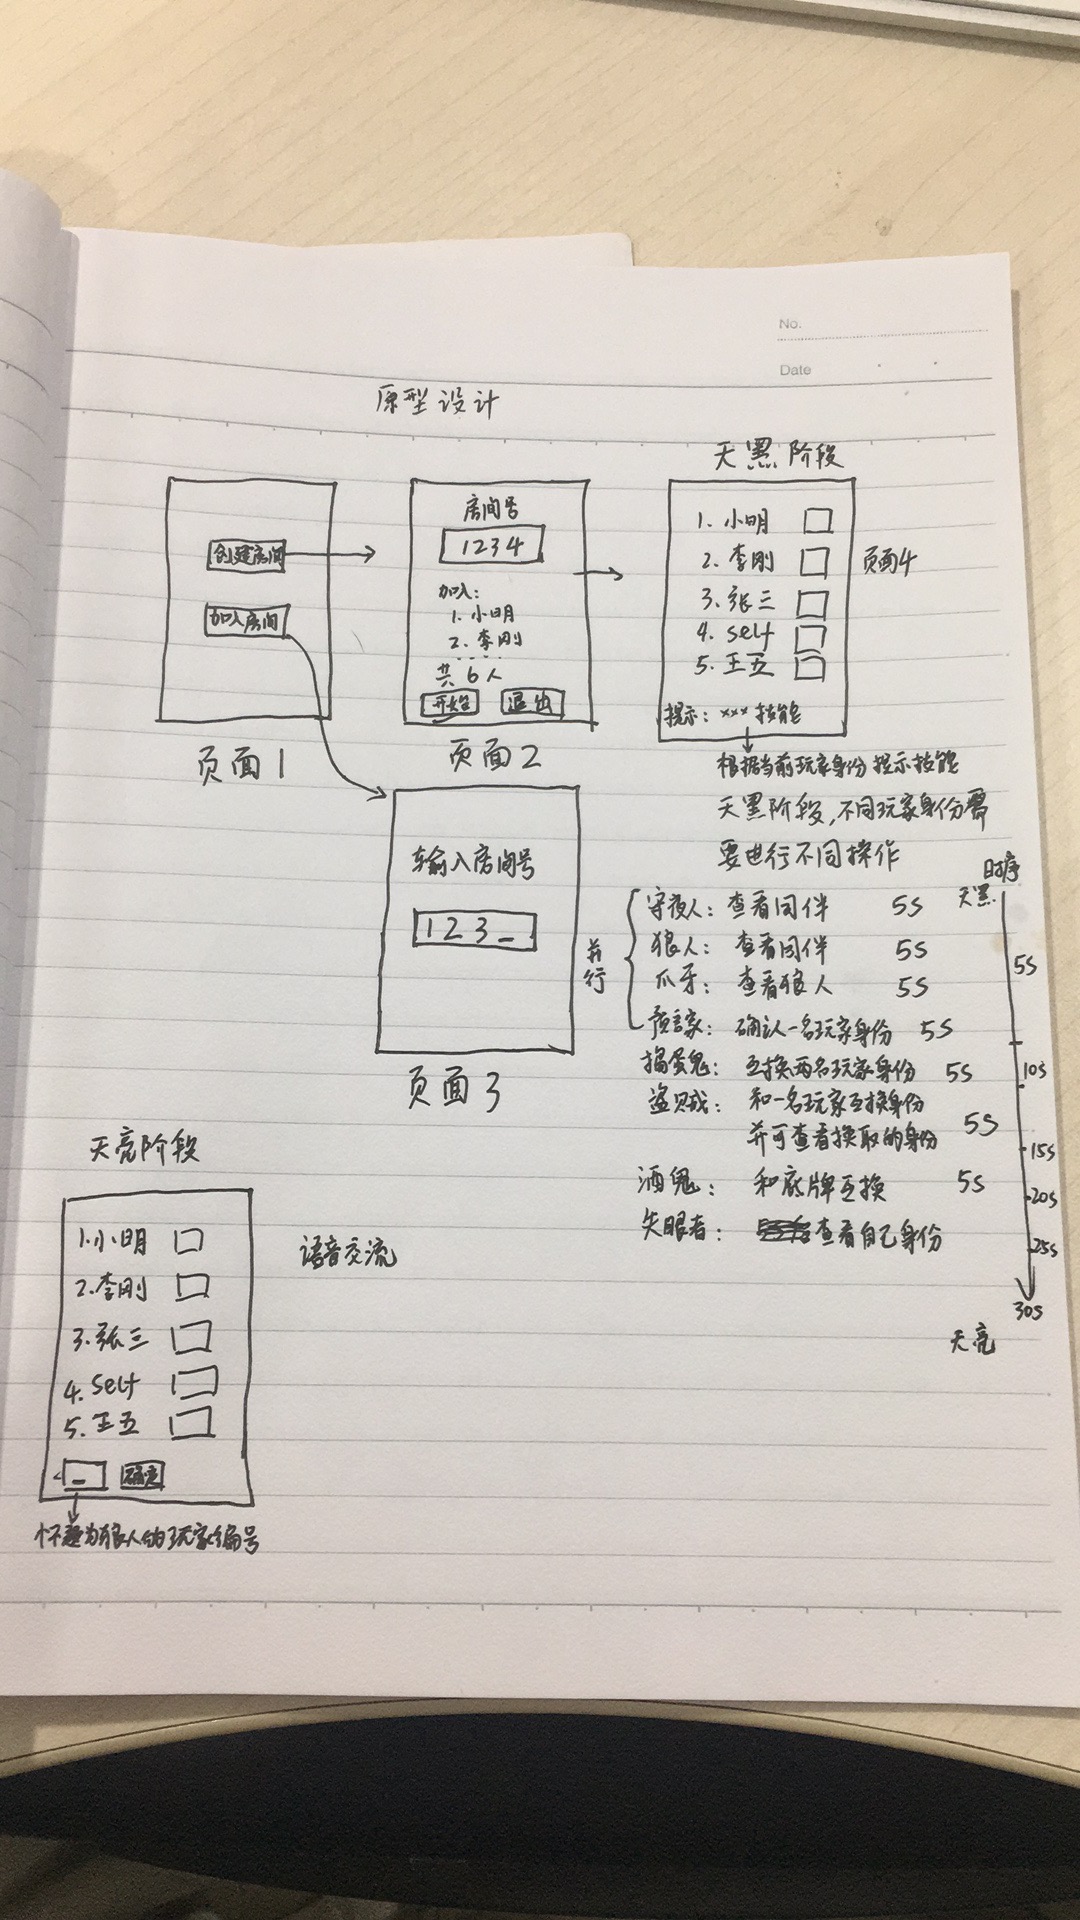 No.
Date
原型设计
创建房间
加入房间
页面1
房间号
1234
加入:
1. 小明
2. 李刚
....
共6人
开始 退出
页面2
天黑阶段
1. 小明
2. 李刚
3. 张三
4. self
5. 王五
提示: xxx技能
页面4
根据当前玩家身份提示技能
天黑阶段,不同玩家身份需
要进行不同操作
输入房间号
123_
页面3
并行
守夜人: 查看同伴 5S
狼人: 查看同伴 5S
爪牙: 查看狼人 5S
预言家: 确认一名玩家身份 5S
捣蛋鬼: 互换两名玩家身份 5S
盗贼: 和一名玩家互换身份
并可查看换取的身份 5S
酒鬼: 和底牌互换 5S
失眠者: 查看自己身份
时序
天黑
5S
10S
15S
20S
25S
30S
天亮
天亮阶段
1.小明
2.李刚
3.张三
4.self
5.王五
_ 确定
怀疑为狼人的玩家编号
语音交流